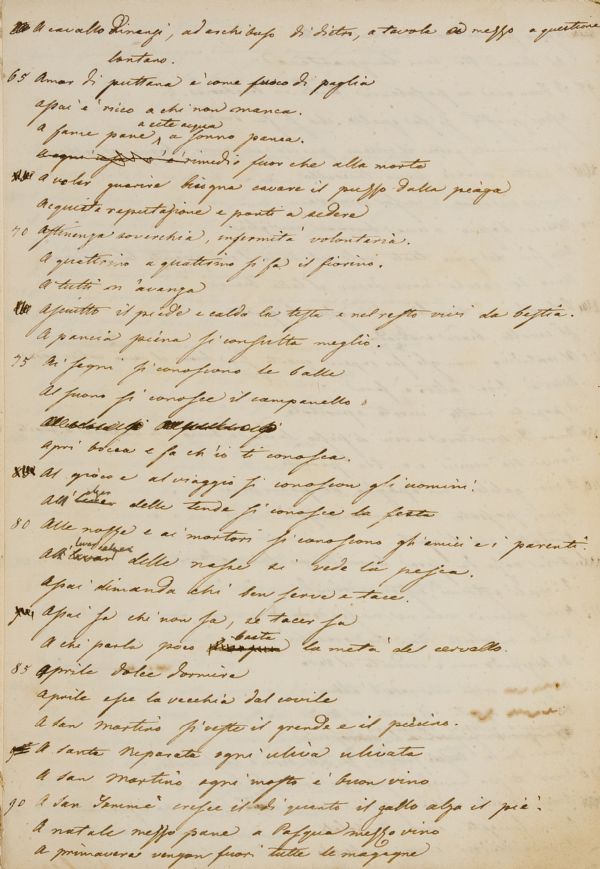 A cavallo dinanzi, ad archibuso di dietro, a tavola in mezzo a questione
lontano.
65 Amor di puttana è come fuoco di paglia
Assai è rico a chi non manca.
a sete acqua
A fame pane, a sonno panca.
rimedio fuor che alla morte
A voler guarire bisogna cavare il puzzo dalla piaga
Acquista reputazione e ponti a sedere
70 Astinenza soverchia, infermità volontaria.
A quattrino a quattrino si fa il fiorino.
A tutti n'avanza
Asciutto il piede e calda la testa e nel resto vivi da bestia.
A pancia piéna si consulta meglio.
75 Ai segni si conoscono le balle
Al suono si conosce il campanello
Apri bocca e fa ch'io ti conosca.
Al giòco e al viaggio si conoscon gli uomini.
All' alzar delle tende si conosce la festa
80 Alle nozze e ai mortori si conoscono gli amici e i parenti.
Al levar delle nasse si vede la pesca.
Assai dimanda chi ben serve e tace.
Assai sa chi non sa, se tacer sa
basta
A chi parla pòco la metà del cervello.
85 Aprile dolce dormire
Aprile esce la vecchia dal covile
A san Martino si veste il grande e il piccino.
A santa Reparata ogni uliva ulivata
A san Martino ogni mosto è buon vino
90 A San Tommè cresce il dì quanto il gallo alza il piè.
A natale mezzo pane a Pasqua mezzo vino
A primavera vengon fuori tutte le magagne